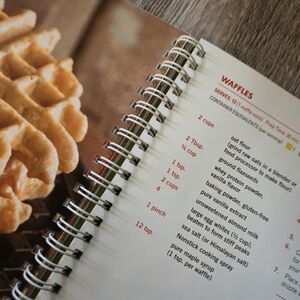 WAFFLES
SERVES: 12 (1 waffle each) Prep Time: 20 min.
CONTAINER EQUIVALENTS (per serving):
2 cups oat flour
(grind raw oats in a blender or
food processor to make flour)
2 Tbsp. ground flaxseeds
¼ cup whey protein powder,
vanilla flavor
1 tsp. baking powder, gluten-free
1 tsp. pure vanilla extract
2 cups unsweetened almond milk
4 large egg whites (½ cup),
beaten to form stiff peaks
1 pinch sea salt (or Himalayan salt)
Nonstick cooking spray
12 tsp. pure maple syrup
(1 tsp. per waffle)
5.
6.
7. Place
drizzle